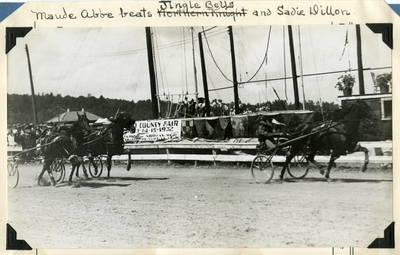 Jingle Bells
Maude Abbe beats Northern Knight and Sadie Dillon
COUNTY FAIR